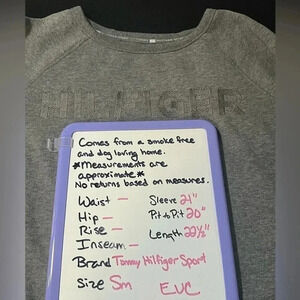 HILFIGER
Comes from a smoke free
and dog loving home.
*Measurements are
approximate*
No returns based on measures.
Waist — Sleeve 21"
Hip — Pit to Pit 20"
Rise — Length 22½"
Inseam —
Brand Tommy Hilfiger Sport
Size Sm EUC